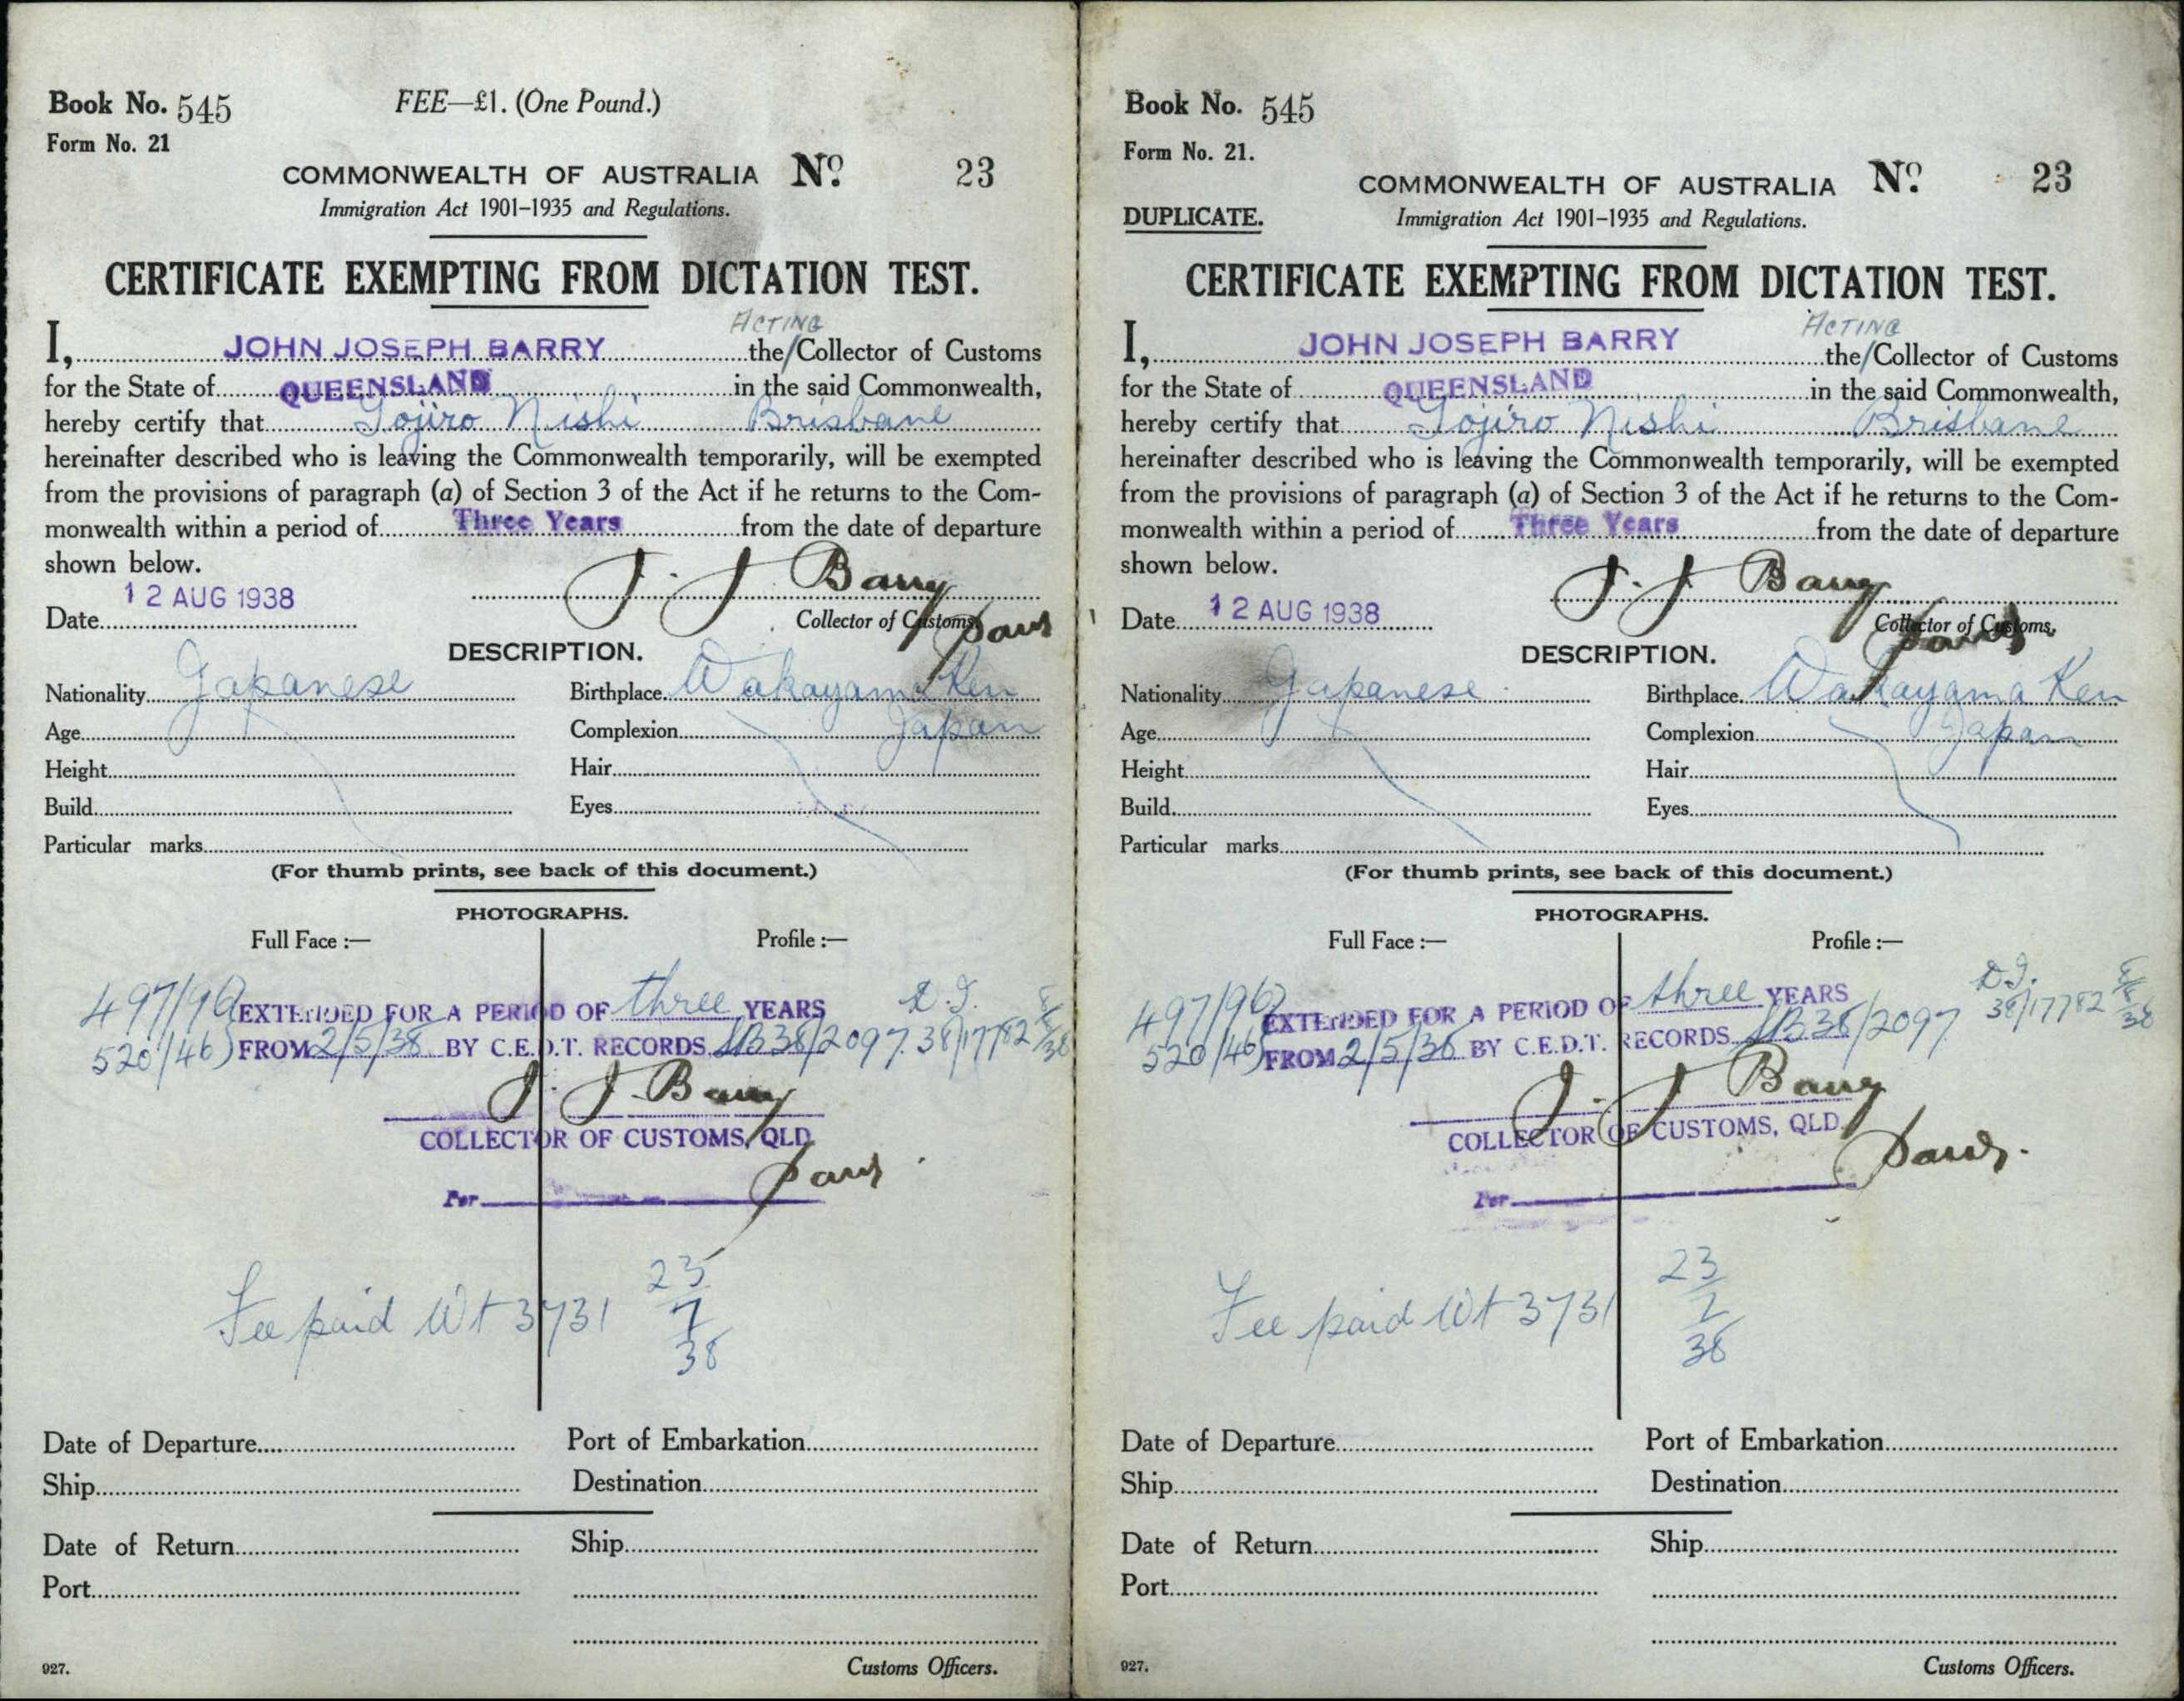 Book No. 545
FEE—£1. (One Pound.)
Form No. 21
COMMONWEALTH OF AUSTRALIA No. 23
Immigration Act 1901–1935 and Regulations.
CERTIFICATE EXEMPTING FROM DICTATION TEST.
ACTING
I, JOHN JOSEPH BARRY the/Collector of Customs
for the State of QUEENSLAND in the said Commonwealth,
hereby certify that Gojiro Nishi Brisbane
hereinafter described who is leaving the Commonwealth temporarily, will be exempted
from the provisions of paragraph (a) of Section 3 of the Act if he returns to the Com-
monwealth within a period of Three Years from the date of departure
shown below.
J. J. Barry
Date 12 AUG 1938
Collector of Customs
DESCRIPTION.
Nationality Japanese Birthplace Wakayama Ken
Age Complexion Japan
Height Hair
Build Eyes
Particular marks
(For thumb prints, see back of this document.)
PHOTOGRAPHS.
Full Face :— Profile :—
497/96 EXTENDED FOR A PERIOD OF three YEARS
520/46) FROM 2/5/38 BY C.E.D.T. RECORDS 38/2097 38/17782
J. J. Barry
COLLECTOR OF CUSTOMS, QLD
Per
Fee paid Wt 3731 23/7/38
Date of Departure Port of Embarkation
Ship Destination
Date of Return Ship
Port
927.
Customs Officers.
Book No. 545
Form No. 21.
COMMONWEALTH OF AUSTRALIA No. 23
DUPLICATE.
Immigration Act 1901–1935 and Regulations.
CERTIFICATE EXEMPTING FROM DICTATION TEST.
ACTING
I, JOHN JOSEPH BARRY the/Collector of Customs
for the State of QUEENSLAND in the said Commonwealth,
hereby certify that Gojiro Nishi Brisbane
hereinafter described who is leaving the Commonwealth temporarily, will be exempted
from the provisions of paragraph (a) of Section 3 of the Act if he returns to the Com-
monwealth within a period of Three Years from the date of departure
shown below.
J. J. Barry
Date 12 AUG 1938
Collector of Customs.
DESCRIPTION.
Nationality Japanese Birthplace Wakayama Ken
Age Complexion Japan
Height Hair
Build Eyes
Particular marks
(For thumb prints, see back of this document.)
PHOTOGRAPHS.
Full Face :— Profile :—
497/96 EXTENDED FOR A PERIOD OF three YEARS
520/46) FROM 2/5/38 BY C.E.D.T. RECORDS 38/2097 38/17782
J. J. Barry
COLLECTOR OF CUSTOMS, QLD
Per
Fee paid Wt 3731 23/7/38
Date of Departure Port of Embarkation
Ship Destination
Date of Return Ship
Port
927.
Customs Officers.